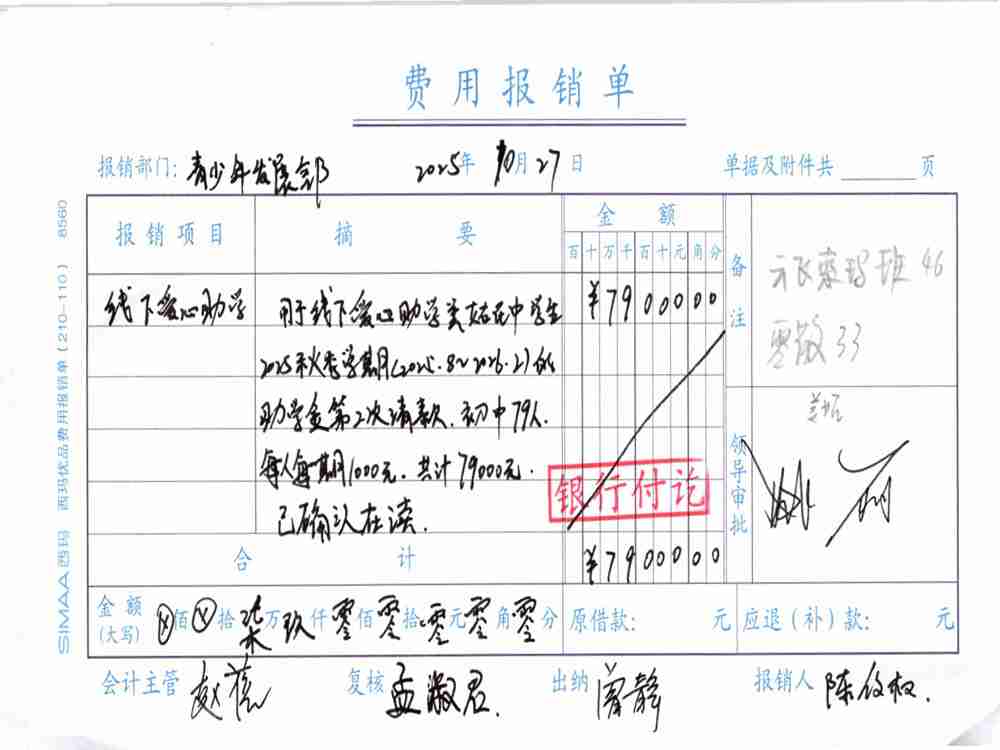 费用报销单
报销部门: 青少年发展部 2025年 10月 27日 单据及附件共 页
报销项目 摘 要 金 额 备注
百 十 万 千 百 十 元 角 分
线下爱心助学 用于线下爱心助学类 在中学生 ¥7900000
2025秋季学期(2025.8~2026.2)的
助学金第2次请款.初中79人.
每人每期1000元.共计79000元.
已确认在读.
班 46
零散 33
领导审批
银行付讫
合 计 ¥7900000
金额(大写) ⊗佰⊗拾柒万玖仟零佰零拾零元零角零分 原借款: 元 应退(补)款: 元
会计主管 赵 复核 孟淑君 出纳 曾静 报销人 陈权.
SIMAA西玛 西玛优品费用报销单(210-110) 8560